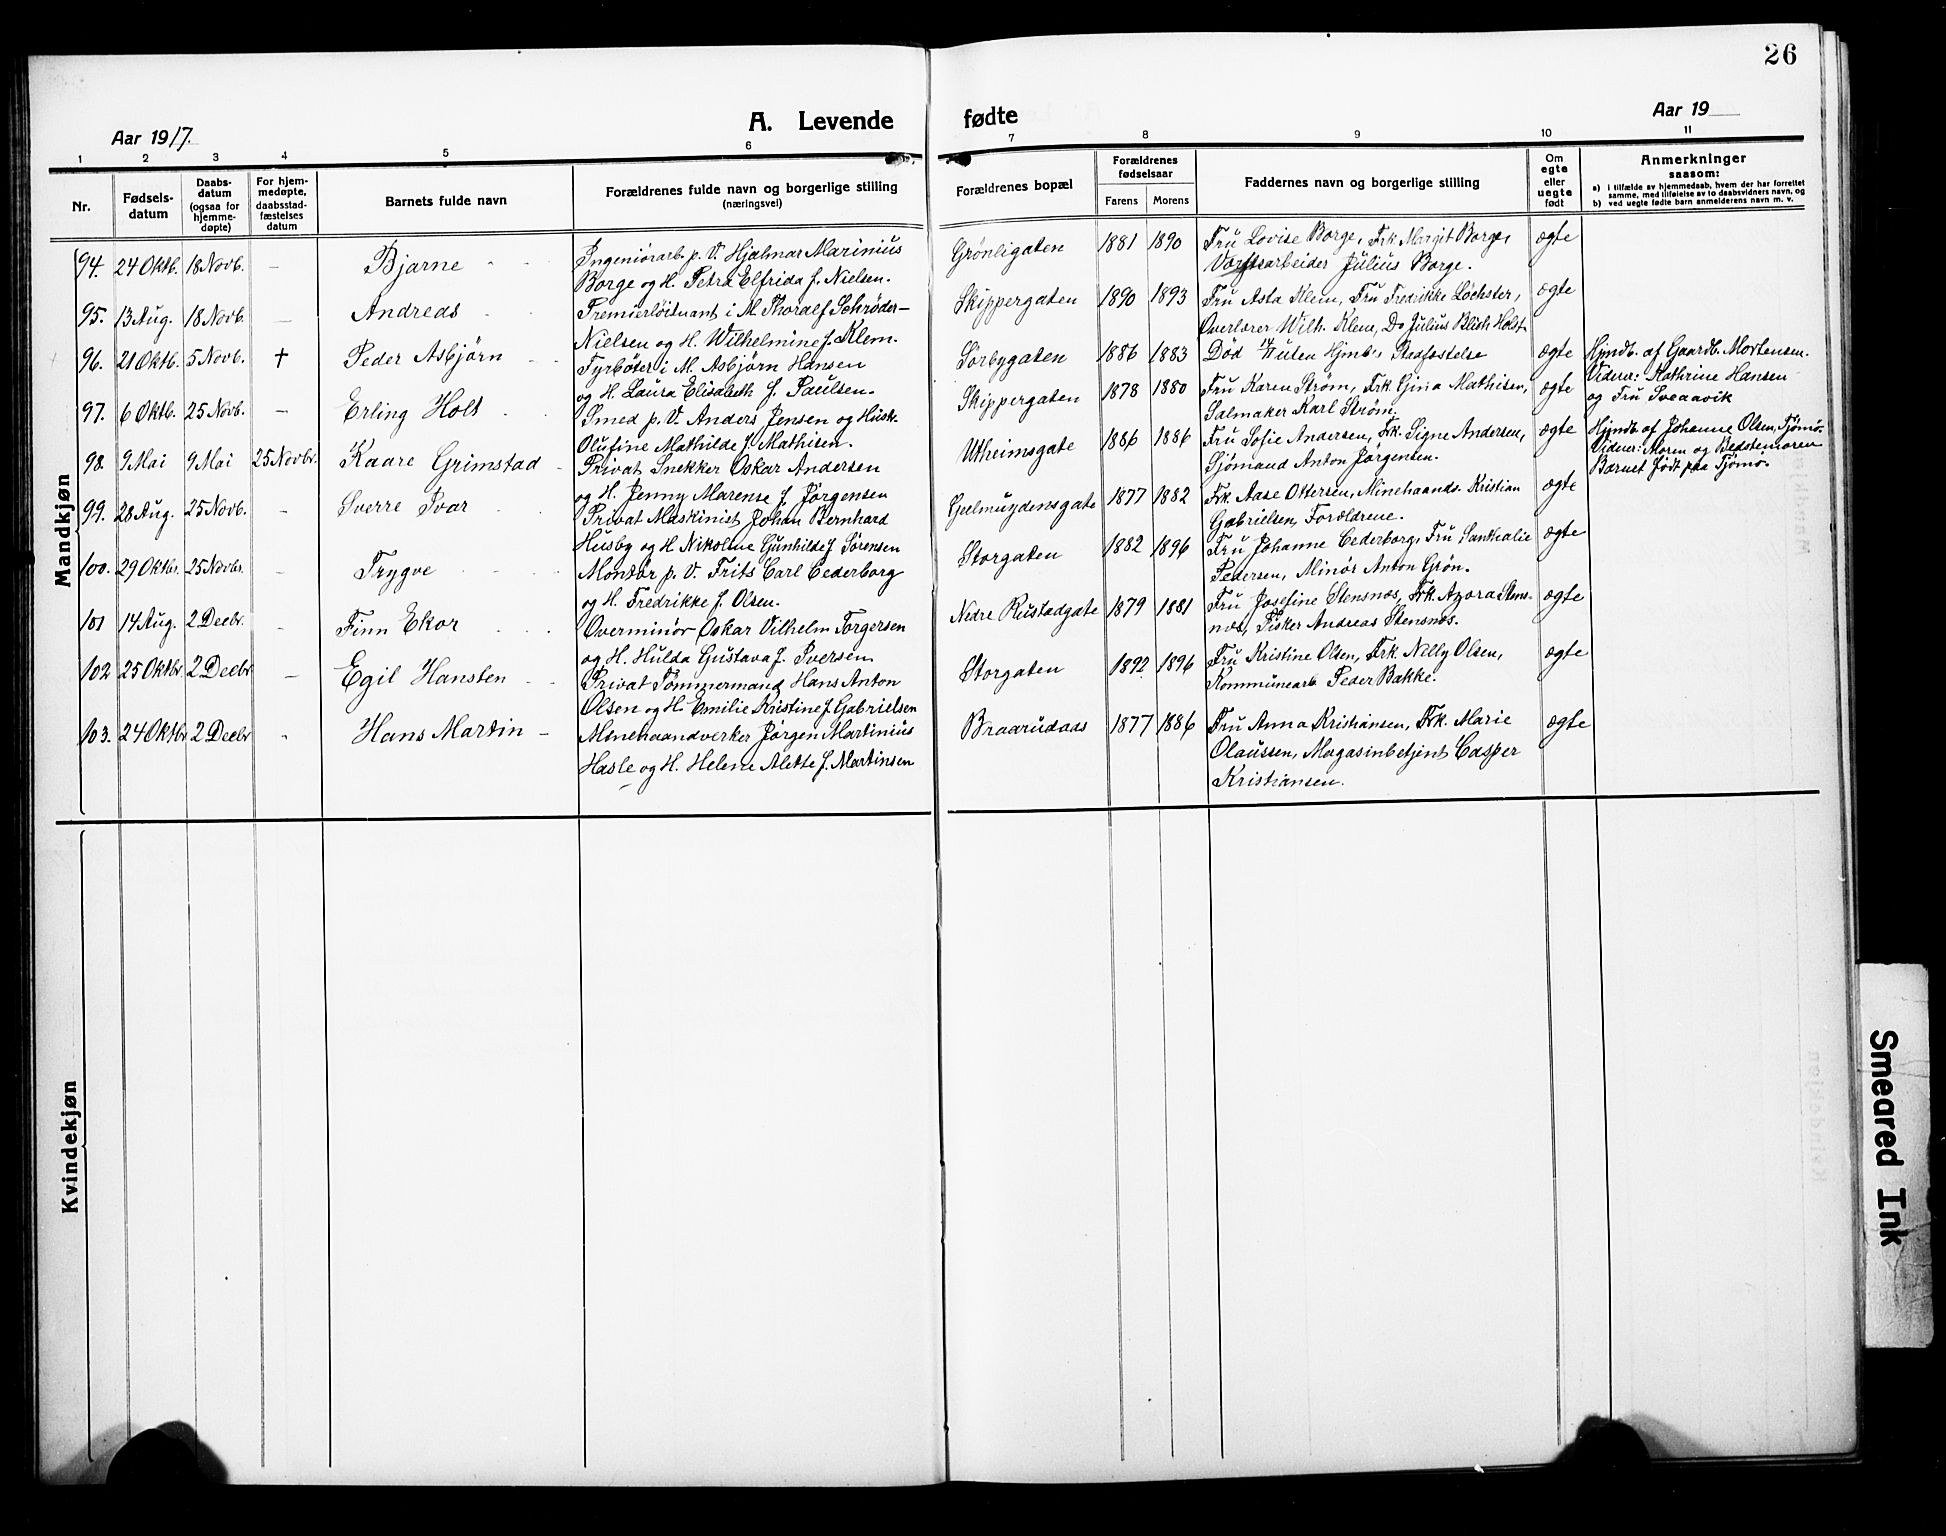 26
Aar 1917.
A. Levende
fødte
Aar 19
1 2 3 4 5 6 7 8 9 10 11
Nr.
Fødsels-
datum
Daabs-
datum
(ogsaa for
hjemme-
døpte)
For hjem-
medøpte,
daabsstad-
fæstelses
datum
Barnets fulde navn
Forældrenes fulde navn og borgerlige stilling
(næringsvei)
Forældrenes bopæl
Forældrenes
fødselsaar
Farens Morens
Faddernes navn og borgerlige stilling
Om
egte
eller
uegte
født
Anmerkninger
saasom:
a) i tilfælde av hjemmedaab, hvem der har forrettet
samme, med tilføielse av to daabsvidners navn, og
b) ved uegte fødte barn anmelderens navn m. v.
Mandkjøn
94. 24 Oktb. 18 Novb. — Bjarne
Ingeniörarb. p. V. Hjalmar Marinius
Borge og H. Petra Elfrida f. Nielsen.
Grønligaten 1881 1890
Fru Lovise Borge, Frk Margit Borge,
Værftsarbeider Julius Borge.
ægte
95. 13 Aug. 18 Novb. — Andreas
Premierløitnant i M. Thoralf Schrøder-
Nielsen og H. Wilhelmine f. Klem.
Skippergaten 1890 1893
Fru Asta Klem, Fru Fredrikke Løchster,
Overlærer Wilh. Klem, Do Julius Blich Holst
ægte
96. 21 Oktb. 5 Novb. † Peder Asbjørn
Fyrbøter i M. Asbjørn Hansen
og H. Laura Elisabeth f. Paulsen.
Sørbygaten 1886 1883
Død uten Hjmbs Stadfæstelse
ægte
Hjmdb. af Gaardb. Mortensen.
Vidner: Kathrine Hansen
og Fru Sveaavik
97. 6 Oktb. 25 Novb. — Erling Holt
Smed p. V. Anders Jensen og Hustr.
Olufine Mathilde f. Mathisen.
Skippergaten 1878 1880
Fru Karen Strøm, Frk Gina Mathisen,
Salmaker Karl Strøm.
ægte
98. 9 Mai 9 Mai 25 Novbr. Kaare Grimstad
Privat Snekker Oskar Andersen
og H. Jenny Marense f. Jörgensen
Utheimsgate 1886 1886
Fru Sofie Andersen, Frk. Signe Andersen,
Sjømand Anton Jørgensen.
ægte
Hjmdb af Johanne Olsen, Tjømø.
Vidner: Moren og Bedstemoren
Barnet født paa Tjømø.
99. 28 Aug. 25 Novb. - Sverre Ivar
Privat Maskinist Johan Bernhard
Husby og H Nikoline Gunhilde f Sørensen
Gjelmuydensgate 1877 1882
Frk. Aase Ottersen, Minehaandv. Kristian
Gabrielsen, Forældrene.
ægte
100. 29 Oktbr. 25 Novbr. - Trygve
Montør p. V. Frits Carl Cederborg
og H. Fredrikke f. Olsen.
Storgaten 1882 1896
Fru Johanne Cederborg, Fru
Pedersen, Minör Anton Grön.
ægte
101 14 Aug. 2 Decbr. - Finn Ekor
Overminör Oskar Vilhelm Torgersen
og H. Hulda Gustava f. Iversen
Nedre Rustadgate 1879 1881
Fru Josefine Stensnæs, Frk. Azora Stens-
næs, Fisker Andreas Stensnæs.
ægte
102 25 Oktbr 2 Decbr — Egil Hansten
Privat Tømmermand Hans Anton
Olsen og H. Emilie Kristine f. Gabrielsen
Storgaten 1892 1896
Fru Kristine Olsen, Frk. Nelly Olsen,
Kommunearb Peder Bakke.
ægte
103. 24 Oktbr 2 Decbr - Hans Martin
Minehaandverker Jørgen Martinius
Hasle og H. Helene Alette f. Martinsen
Braarudaas 1877 1886
Fru Anna Kristiansen, Frk. Marie
Olaussen, Magasinbetjent Casper
Kristiansen.
ægte
Kvindekjøn
Smeared Ink